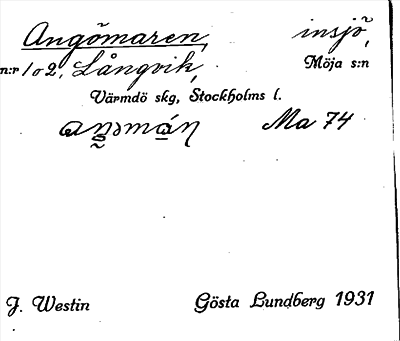 Angömaren, insjö,
n:r 1 o 2, Långvik, Möja s:n
Värmdö skg, Stockholms l.
Ma 74
J. Westin Gösta Lundberg 1931